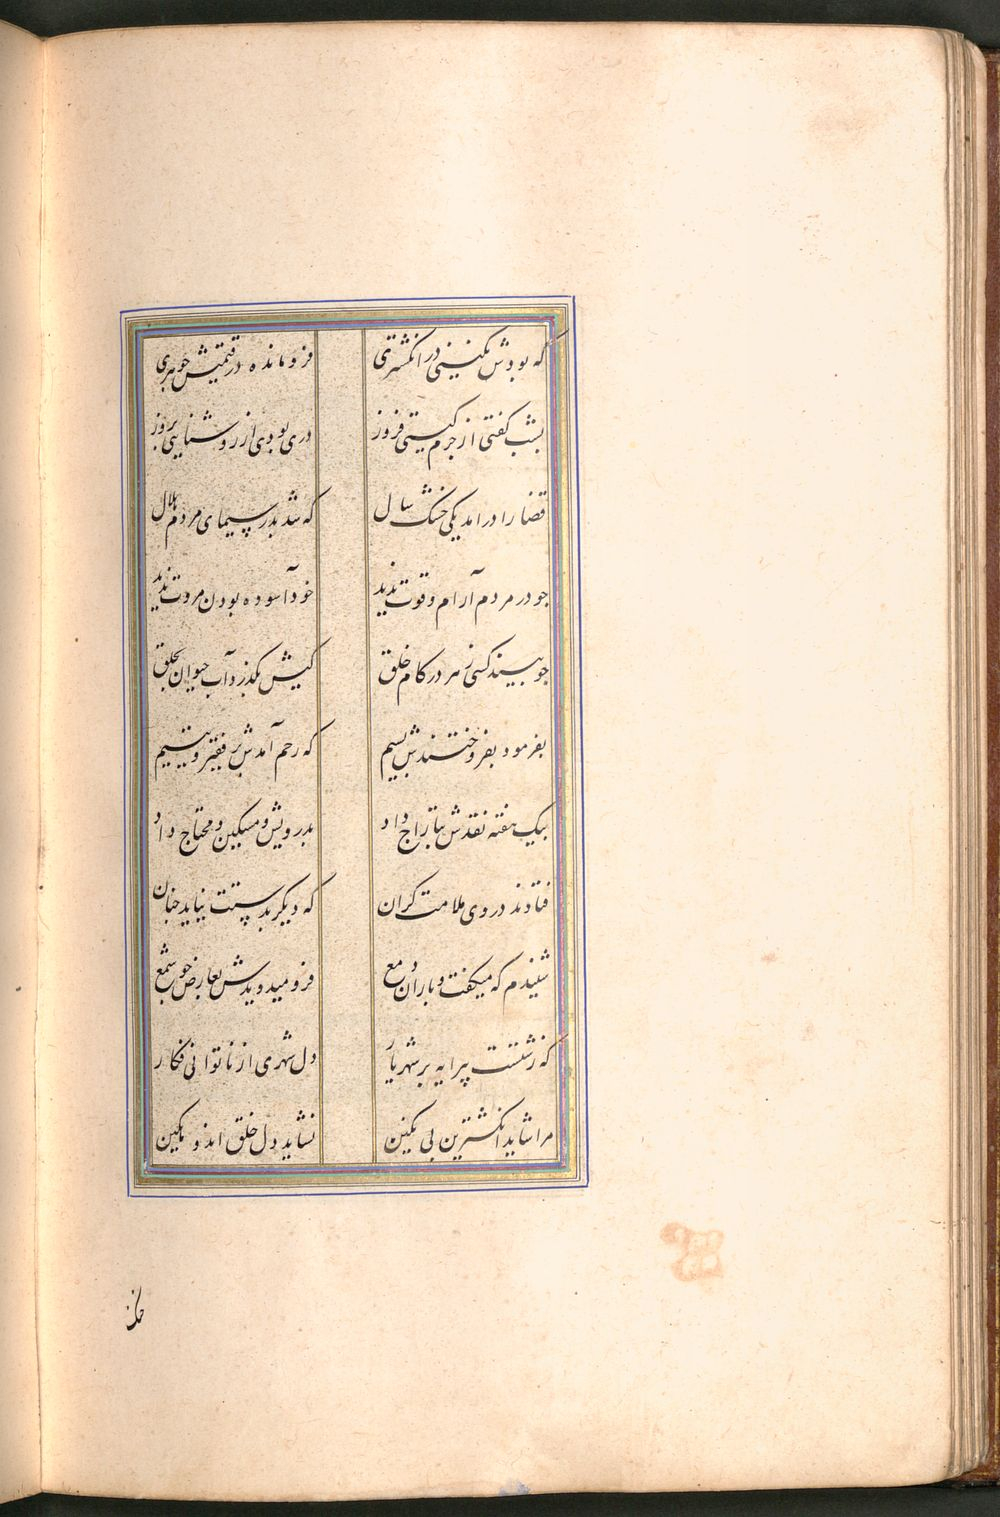 که بودش نکینی در انکشتری فرومانده در قیمتش جوهری
بشب کفتی از جرم کیتی فروز دری بودی از روشنایی بروز
قضا را درامد یکی خشک سال که شد بدر سیمای مردم هلال
جو در مردم آرام و قوت ندید خود آسوده بودن مروت ندید
جو بیند کسی زهر در کام خلق کیش بکذرد آب حیوان بحلق
بفرمود بفروختندش بسیم که رحم آمدش بر فقیر و یتیم
بیک هفته نقدش بتاراج داد بدرویش و مسکین و محتاج داد
فتادند در وی ملامت کران که دیکر بدستت نیاید جنان
شنیدم که میکفت و باران دمع فرو میدویدش بعارض جو شمع
که زشتست پیرایه بر شهریار دل شهری از ناتوانی فکار
مرا شاید انکشترین بی نکین نشاید دل خلق اندوهکین
خنک